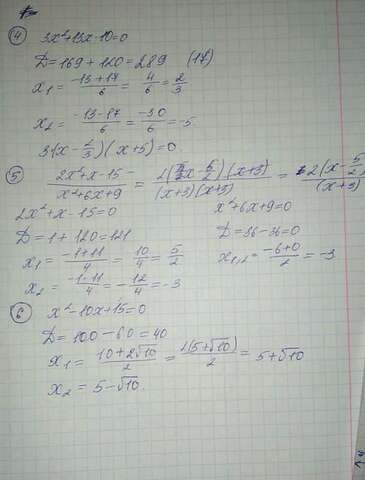 ④ 3x²+13x-10=0
D=169+120=289 (17)
x₁=(-13+17)/6=4/6=2/3
x₂=(-13-17)/6=-30/6=-5
3(x-2/3)(x+5)=0
⑤ (2x²+x-15)/(x²+6x+9)=2(x-5/2)(x+3)/((x+3)(x+3))=2(x-5/2)/(x+3)
2x²+x-15=0 x²+6x+9=0
D=1+120=121 D=36-36=0
x₁=(-1+11)/4=10/4=5/2 x₁,₂=(-6+0)/2=-3
x₂=(-1-11)/4=-12/4=-3
⑥ x²-10x+15=0
D=100-60=40
x₁=(10+2√10)/2=2(5+√10)/2=5+√10
x₂=5-√10.